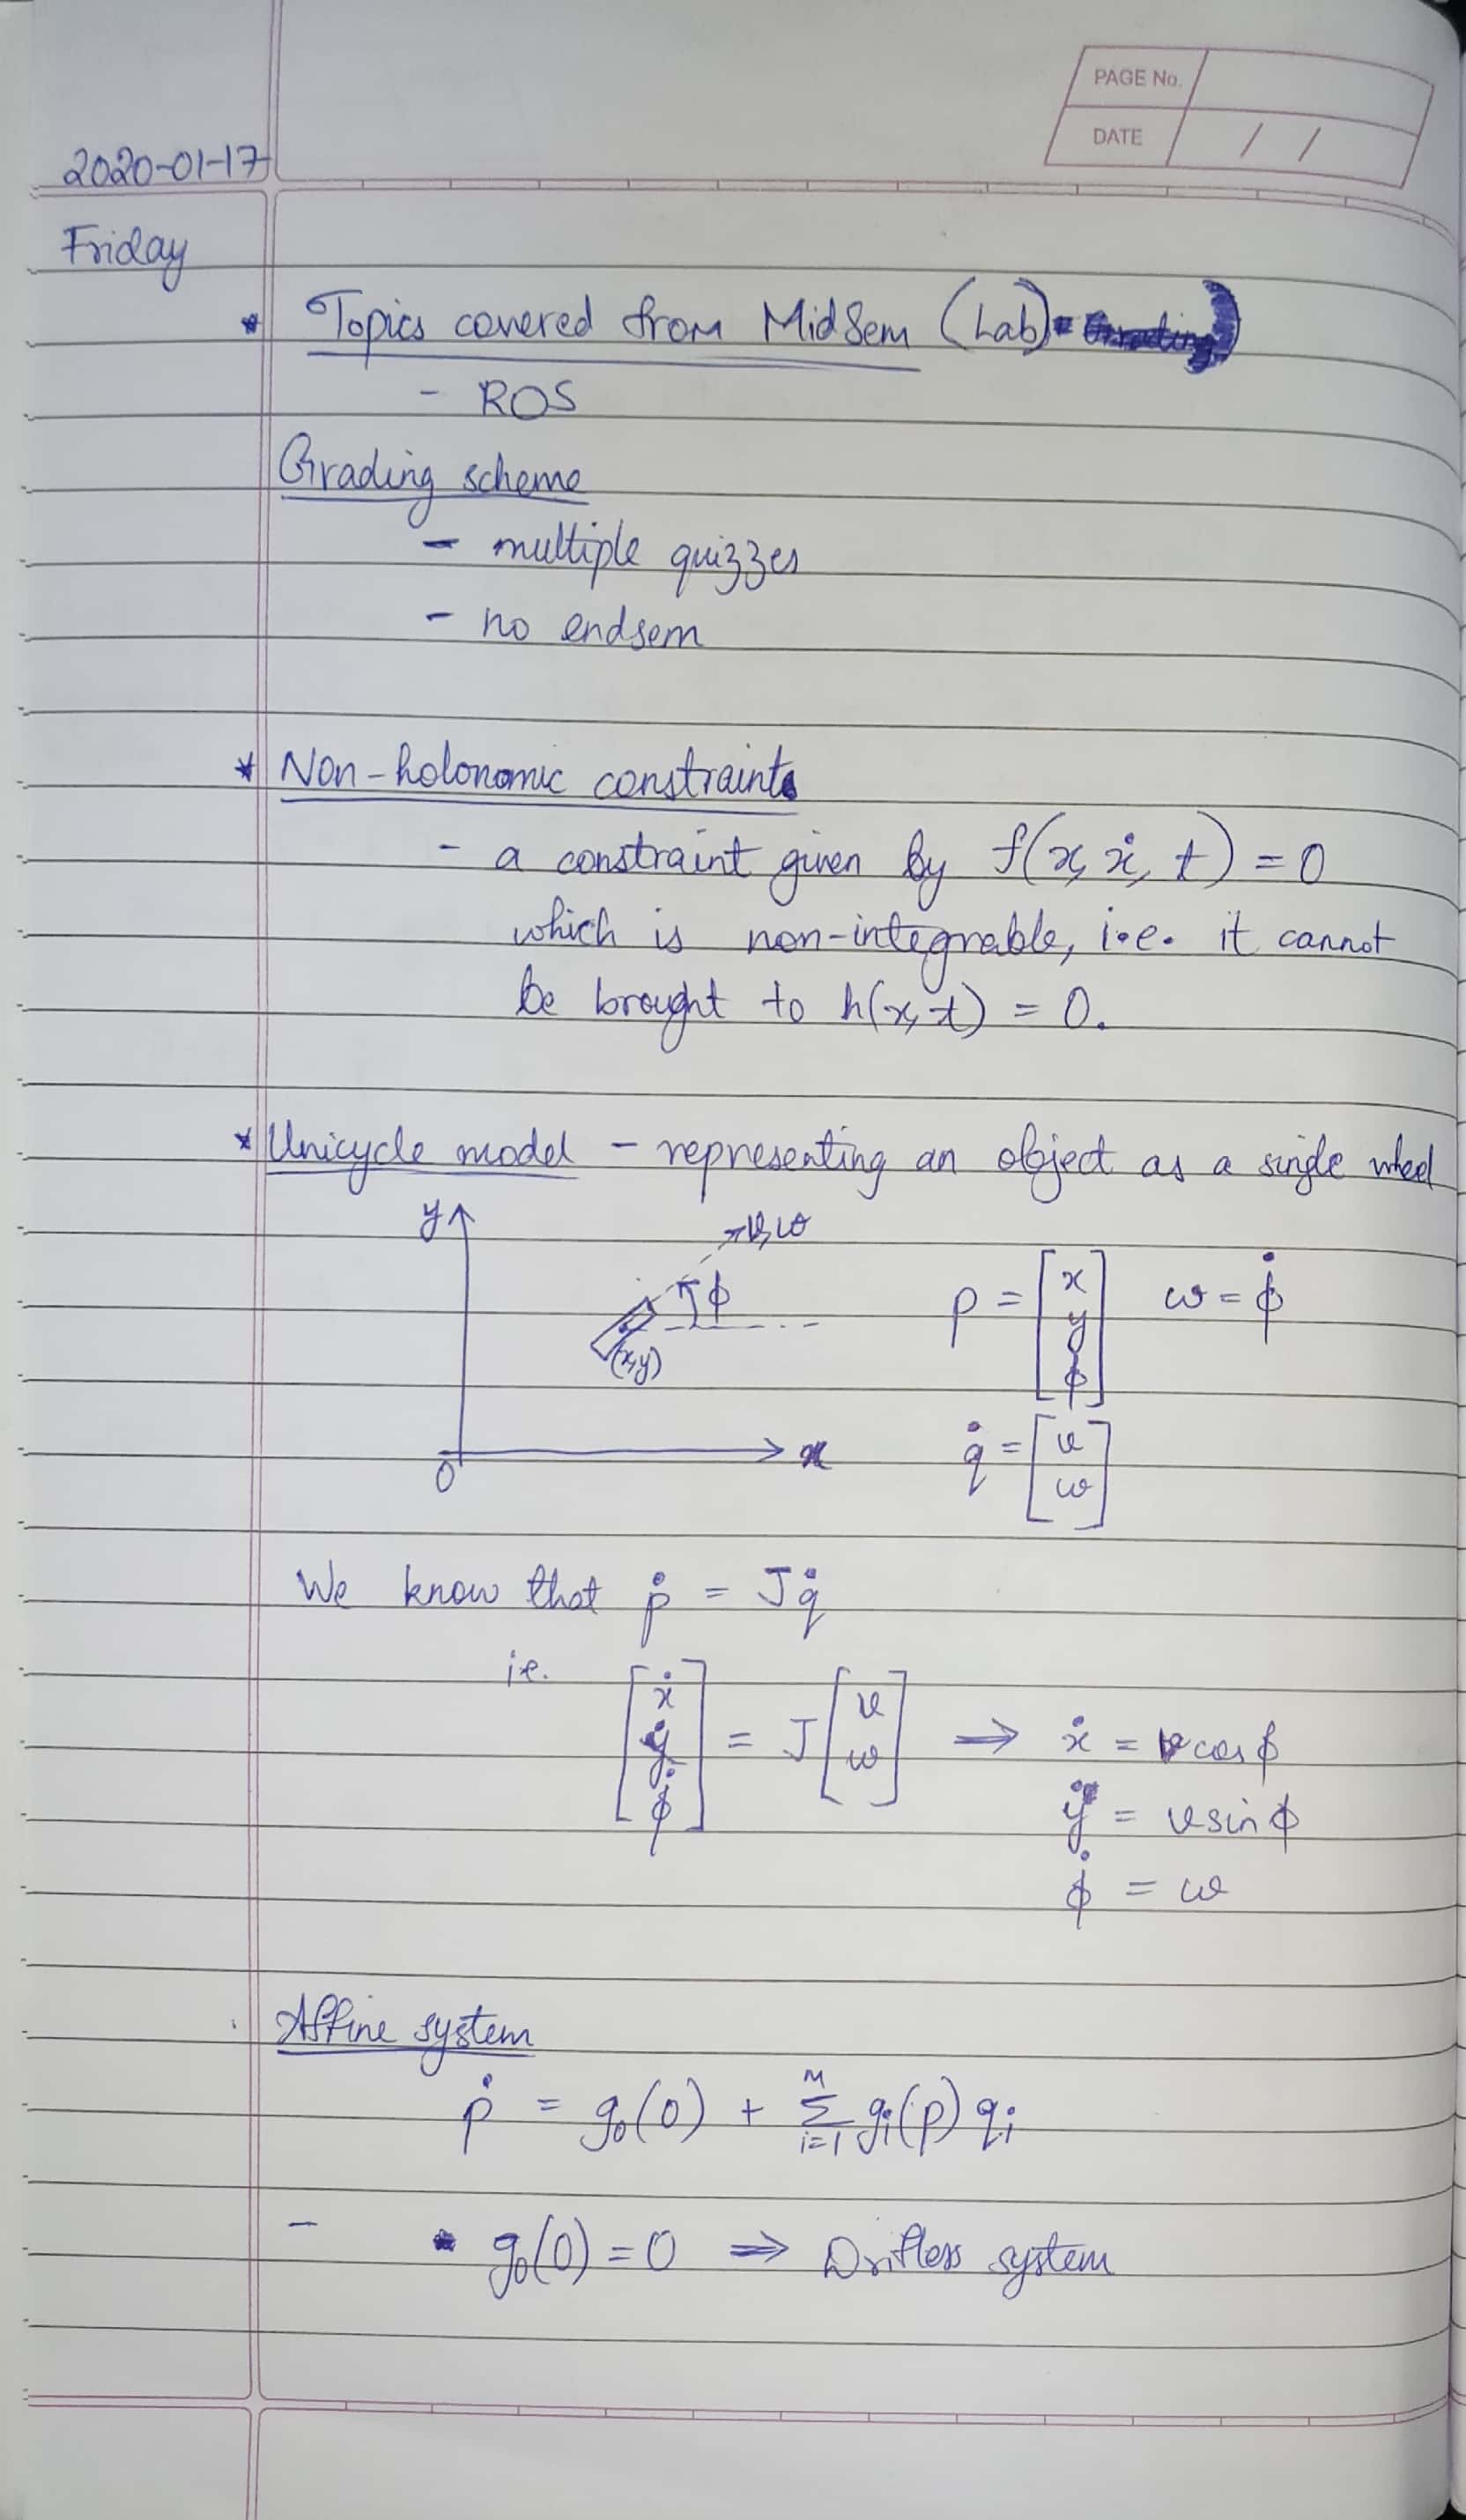 PAGE No.
DATE / /
2020-01-17
Friday
* Topics covered from MidSem (Lab)
- ROS
Grading scheme
- multiple quizzes
- no endsem
* Non-holonomic constraints
- a constraint given by f(x, ẋ, t) = 0
which is non-integrable, i.e. it cannot
be brought to h(x, t) = 0.
* Unicycle model - representing an object as a single wheel
y
v, ω
ϕ
(x,y)
0
x
p = [x y ϕ] ω = ϕ̇
q̇ = [v ω]
We know that ṗ = Jq̇
i.e. [ẋ ẏ ϕ̇] = J[v ω] ⇒ ẋ = v cosϕ
ẏ = v sinϕ
ϕ̇ = ω
Affine system
ṗ = g₀(0) + M Σ i=1 gᵢ(p) qᵢ
- • g₀(0) = 0 ⇒ Driftless system